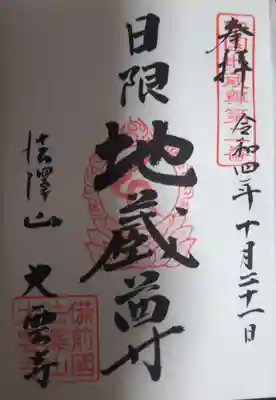 奉拝 令和四年十月二十一日
日限
地蔵尊
法澤山 大雲寺
備前國